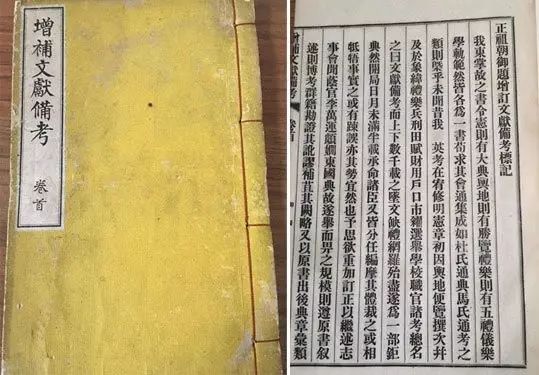 增補文獻備考
卷首
正祖朝御題增訂文獻備考標記
我東掌故之書令憲則有大典輿地則有勝覽禮樂則有五禮儀樂
學軌範然皆各爲一書苟求其會通集成如杜氏通典馬氏通考之
類則槩乎未聞昔我 英考在宥修明憲章初因輿地便覽撰次幷
及於象緯禮樂兵刑田賦財用戶口市糴選舉學校職官諸考總名
之曰文獻備考而上下數千載之墜文缺禮網羅殆盡遂爲一部鉅
典然開局日月未滿半載承命諸臣又皆分任編摩其體裁之或相
牴牾事實之或有踈誤亦其勢宜然也予思欲重加訂正以繼述志
事會聞蔭官李萬運頗嫺東國典故遂擧而畀之規模則遵原書叙
述則博考群籍勘證其訛謬補苴其闕略又以原書出後典章彙類
增補文獻備考 卷首